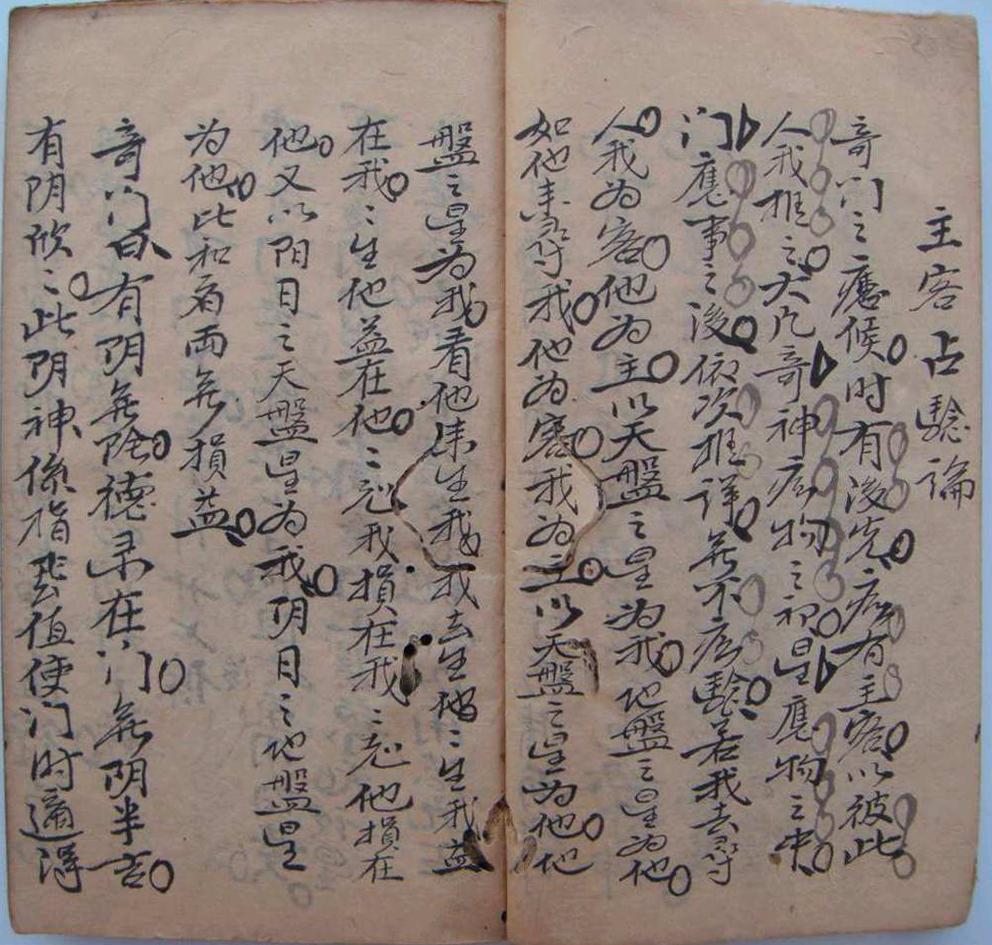 主客占驗論
奇门之應候时有後先应有主客以彼此
人我推之大凡奇神应物之初星應物之中
门應事之後依次推详無不应驗若我去尋
人我为客他为主以天盤之星为我地盤之星为他
如他来尋我他为客我为主以天盤之星为他地
盤之星为我看他来生我我去生他他生我益
在我我生他益在他他尅我損在我我尅他損在
他又以阳日之天盤星为我阴日之地盤星
为他比和者两無損益
奇门曰有阴無陰德禄在门無阴半吉
有阴欣欣此阴神係指值使门时適得